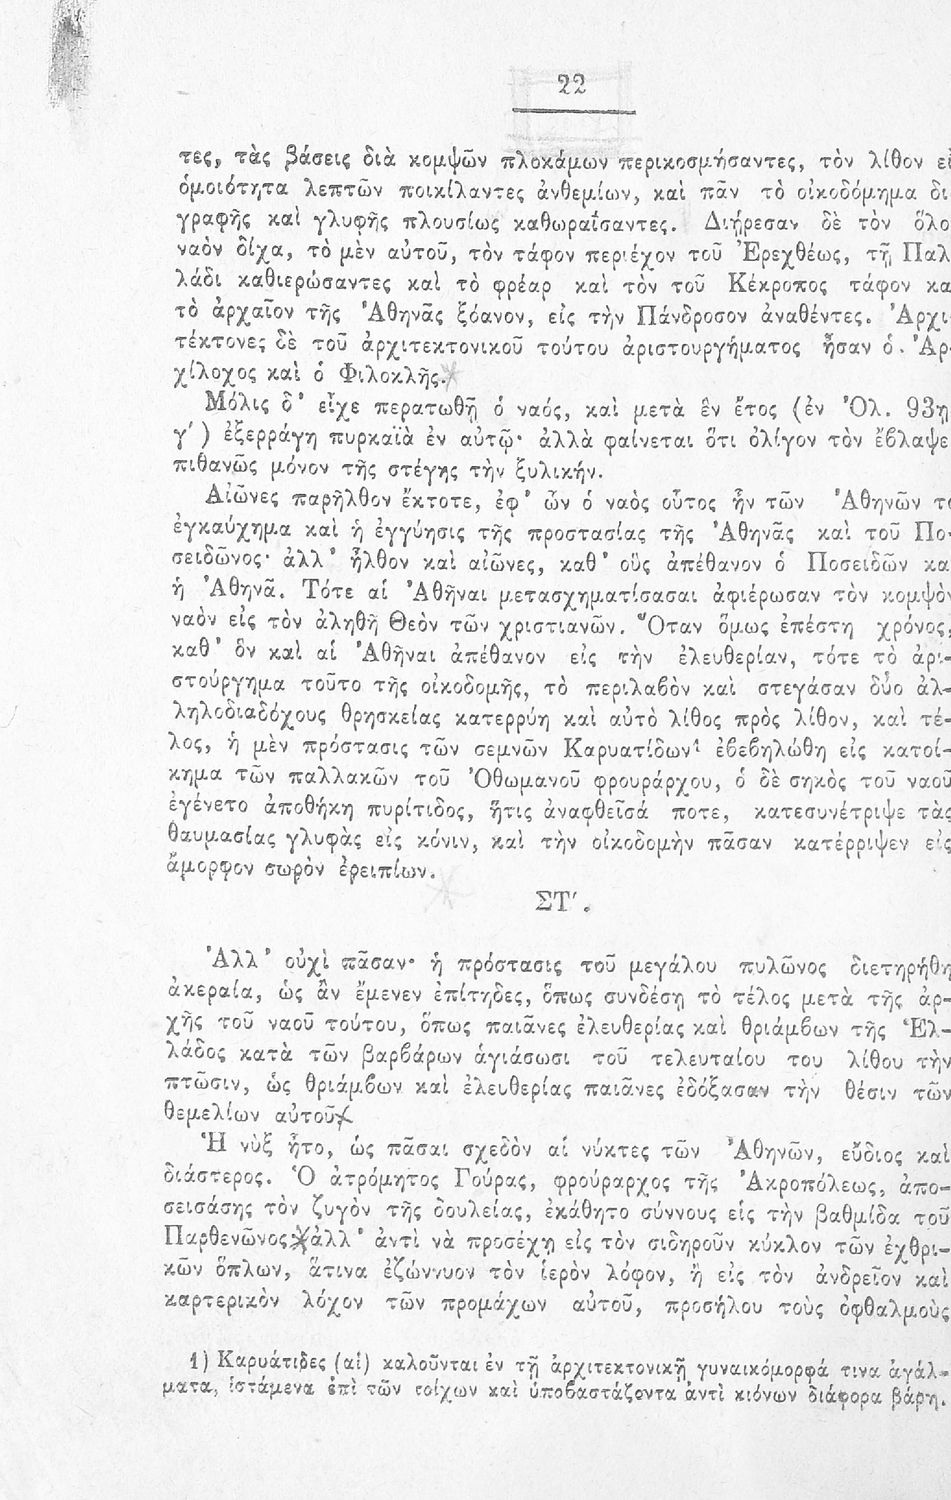 22
τες, τὰς βάσεις διὰ κομψῶν πλοκάμων περικοσμήσαντες, τὸν λίθον εἰ
ὁμοιότητα λεπτῶν ποικίλαντες ἀνθεμίων, καὶ πᾶν τὸ οἰκοδόμημα δι
γραφῆς καὶ γλυφῆς πλουσίως καθωραΐσαντες. Διήρεσαν δὲ τὸν ὅλο
ναὸν δίχα, τὸ μὲν αὐτοῦ, τὸν τάφον περιέχον τοῦ Ἐρεχθέως, τῇ Παλ
λάδι καθιερώσαντες καὶ τὸ φρέαρ καὶ τὸν τοῦ Κέκροπος τάφον κα
τὸ ἀρχαῖον τῆς Ἀθηνᾶς ξόανον, εἰς τὴν Πάνδροσον ἀναθέντες. Ἀρχι
τέκτονες δὲ τοῦ ἀρχιτεκτονικοῦ τούτου ἀριστουργήματος ἦσαν ὁ. Ἀρ-
χίλοχος καὶ ὁ Φιλοκλῆς.
Μόλις δ' εἶχε περατωθῇ ὁ ναός, καὶ μετὰ ἓν ἔτος (ἐν Ὀλ. 93ῃ
γ') ἐξερράγη πυρκαϊὰ ἐν αὐτῷ· ἀλλὰ φαίνεται ὅτι ὀλίγον τὸν ἔβλαψε
πιθανῶς μόνον τῆς στέγης τὴν ξυλικήν.
Αἰῶνες παρῆλθον ἔκτοτε, ἐφ' ὧν ὁ ναὸς οὗτος ἦν τῶν Ἀθηνῶν τὸ
ἐγκαύχημα καὶ ἡ ἐγγύησις τῆς προστασίας τῆς Ἀθηνᾶς καὶ τοῦ Πο-
σειδῶνος· ἀλλ' ἦλθον καὶ αἰῶνες, καθ' οὓς ἀπέθανον ὁ Ποσειδῶν κα
ἡ Ἀθηνᾶ. Τότε αἱ Ἀθῆναι μετασχηματίσασαι ἀφιέρωσαν τὸν κομψὸν
ναὸν εἰς τὸν ἀληθῆ Θεὸν τῶν χριστιανῶν. Ὅταν ὅμως ἐπέστη χρόνος,
καθ' ὃν καὶ αἱ Ἀθῆναι ἀπέθανον εἰς τὴν ἐλευθερίαν, τότε τὸ ἀρι-
στούργημα τοῦτο τῆς οἰκοδομῆς, τὸ περιλαβὸν καὶ στεγάσαν δύο ἀλ-
ληλοδιαδόχους θρησκείας κατερρύη καὶ αὐτὸ λίθος πρὸς λίθον, καὶ τέ-
λος, ἡ μὲν πρόστασις τῶν σεμνῶν Καρυατίδων¹ ἐβεβηλώθη εἰς κατοί-
κημα τῶν παλλακῶν τοῦ Ὀθωμανοῦ φρουράρχου, ὁ δὲ σηκὸς τοῦ ναοῦ
ἐγένετο ἀποθήκη πυρίτιδος, ἥτις ἀναφθεῖσά ποτε, κατεσυνέτριψε τὰς
θαυμασίας γλυφὰς εἰς κόνιν, καὶ τὴν οἰκοδομὴν πᾶσαν κατέρριψεν εἰς
ἄμορφον σωρὸν ἐρειπίων.
ΣΤ'.
Ἀλλ' οὐχὶ πᾶσαν· ἡ πρόστασις τοῦ μεγάλου πυλῶνος διετηρήθη
ἀκεραία, ὡς ἂν ἔμενεν ἐπίτηδες, ὅπως συνδέσῃ τὸ τέλος μετὰ τῆς ἀρ-
χῆς τοῦ ναοῦ τούτου, ὅπως παιᾶνες ἐλευθερίας καὶ θριάμβων τῆς Ἑλ-
λάδος κατὰ τῶν βαρβάρων ἁγιάσωσι τοῦ τελευταίου του λίθου τὴν
πτῶσιν, ὡς θριάμβων καὶ ἐλευθερίας παιᾶνες ἐδόξασαν τὴν θέσιν τῶν
θεμελίων αὐτοῦ.
Ἡ νὺξ ἦτο, ὡς πᾶσαι σχεδὸν αἱ νύκτες τῶν Ἀθηνῶν, εὔδιος καὶ
διάστερος. Ὁ ἀτρόμητος Γούρας, φρούραρχος τῆς Ἀκροπόλεως, ἀπο-
σεισάσης τὸν ζυγὸν τῆς δουλείας, ἐκάθητο σύννους εἰς τὴν βαθμίδα τοῦ
Παρθενῶνος· ἀλλ' ἀντὶ νὰ προσέχῃ εἰς τὸν σιδηροῦν κύκλον τῶν ἐχθρι-
κῶν ὅπλων, ἅτινα ἐζώννυον τὸν ἱερὸν λόφον, ἢ εἰς τὸν ἀνδρεῖον καὶ
καρτερικὸν λόχον τῶν προμάχων αὐτοῦ, προσήλου τοὺς ὀφθαλμοὺς
1) Καρυάτιδες (αἱ) καλοῦνται ἐν τῇ ἀρχιτεκτονικῇ γυναικόμορφά τινα ἀγάλ-
ματα, ἱστάμενα ἐπὶ τῶν τοίχων καὶ ὑποβαστάζοντα ἀντὶ κιόνων διάφορα βάρη.